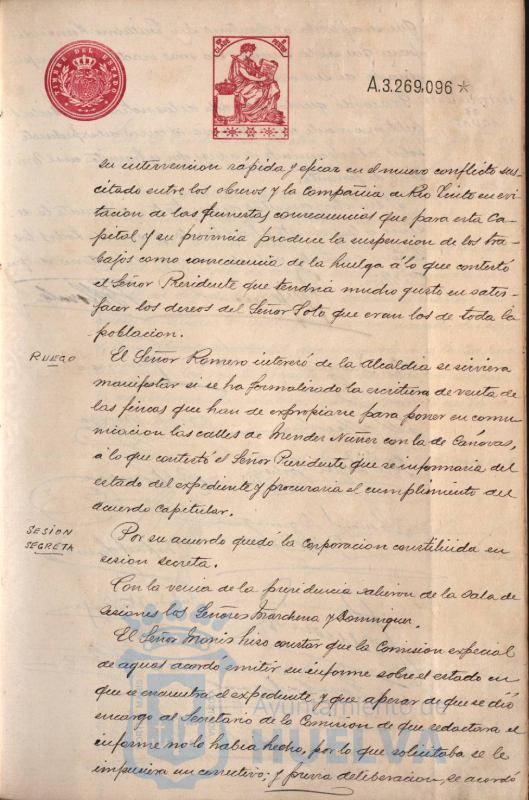 TIMBRE DEL ESTADO
A.3.269,096 *
su intervencion rápida y eficaz en el nuevo conflicto sus-
citado entre los obreros y la Compañia de Rio Tinto en evi-
tacion de las funestas consecuencias que para esta Ca-
pital y su provincia produce la suspension de los tra-
bajos como consecuencia de la huelga á lo que contestó
el Señor Presidente que tendria mucho gusto en satis-
facer los deseos del Señor Soto que eran los de toda la
poblacion.
RUEGO
El Señor Romero interesó de la Alcaldia se sirviera
manifestar si se ha formalizado la escritura de venta de
las fincas que han de expropiarse para poner en comu-
nicacion las calles de Mendez Nuñez con la de Cánovas,
á lo que contestó el Señor Presidente que se informaria del
estado del expediente y procuraria el cumplimiento del
acuerdo capitular.
SESION
SEGRETA
Por su acuerdo quedó la Corporacion constituida en
sesion secreta.
Con la venia de la presidencia salieron de la Sala de
Sesiones los Señores Marchena y Dominguez.
El Señor Monis hizo constar que la Comision especial
de aguas acordó emitir su informe sobre el estado en
que se encuentra el expediente y que apesar de que se dió
encargo al Secretario de la Comision de que redactara el
informe no lo habia hecho, por lo que solicitaba se le
impusiera un correctivo; y previa deliberacion, se acordó
Ayuntamiento de
HUELVA